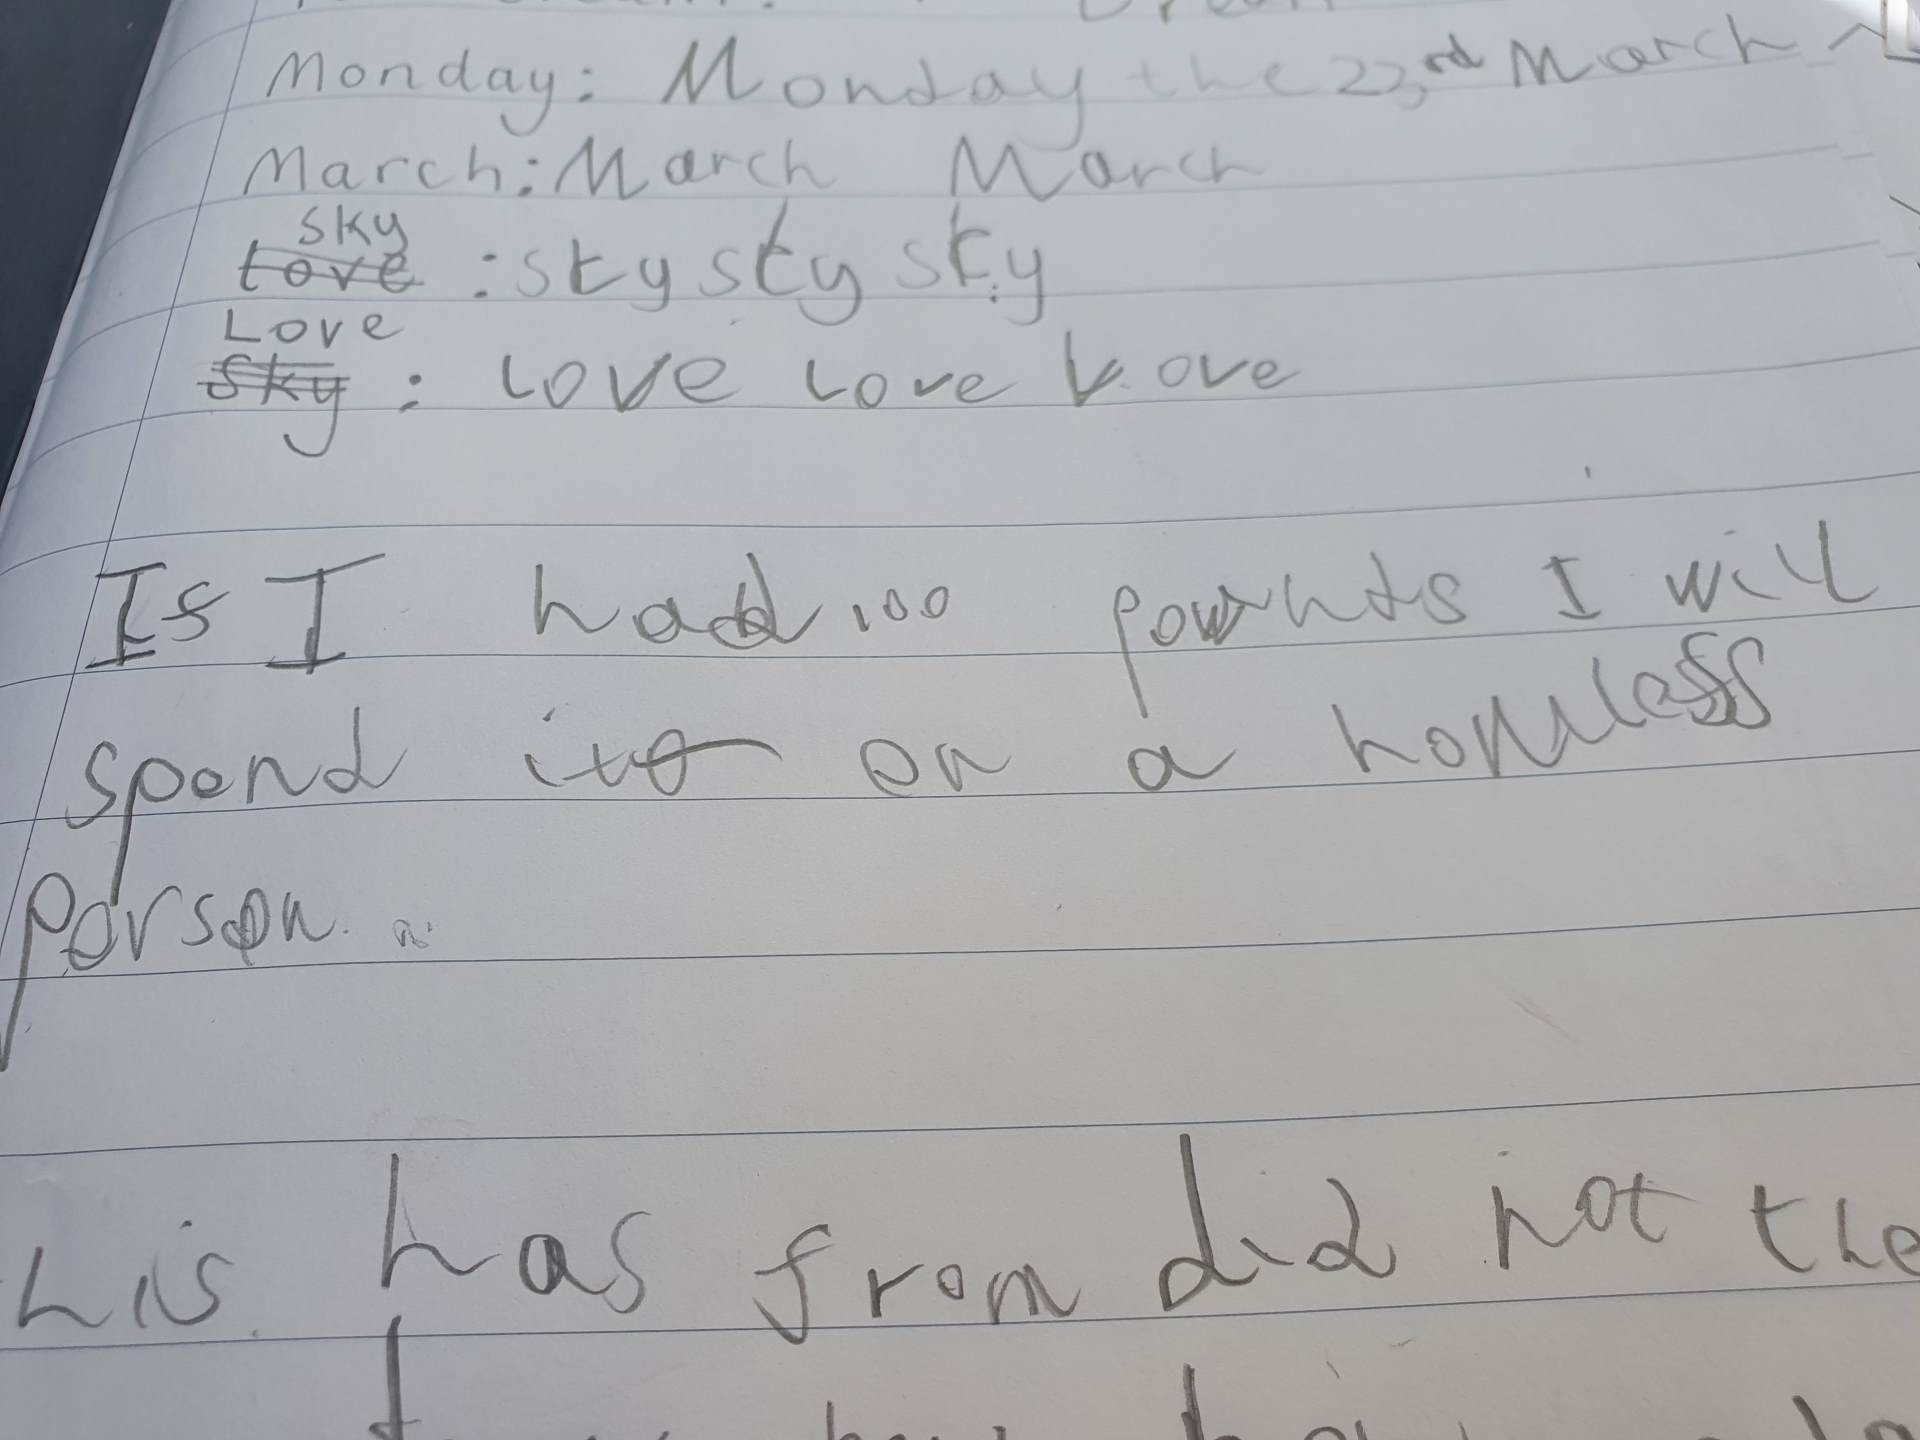 Monday: Monday the 22nd March
March: March March
sky
Love : sky sky sky
Love
Sky : Love Love Love
If I had 100 pounds I will
spend it on a homless
person.
his has from did not the